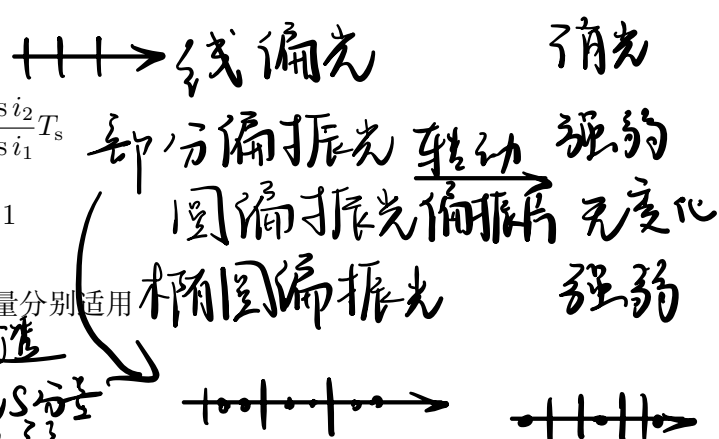 线偏光 消光
s i₂
s i₁ Tₛ
部分偏振光 转动 强弱
1
圆偏振光 偏振片 无变化
量分别适用
椭圆偏振光 强弱
S分量